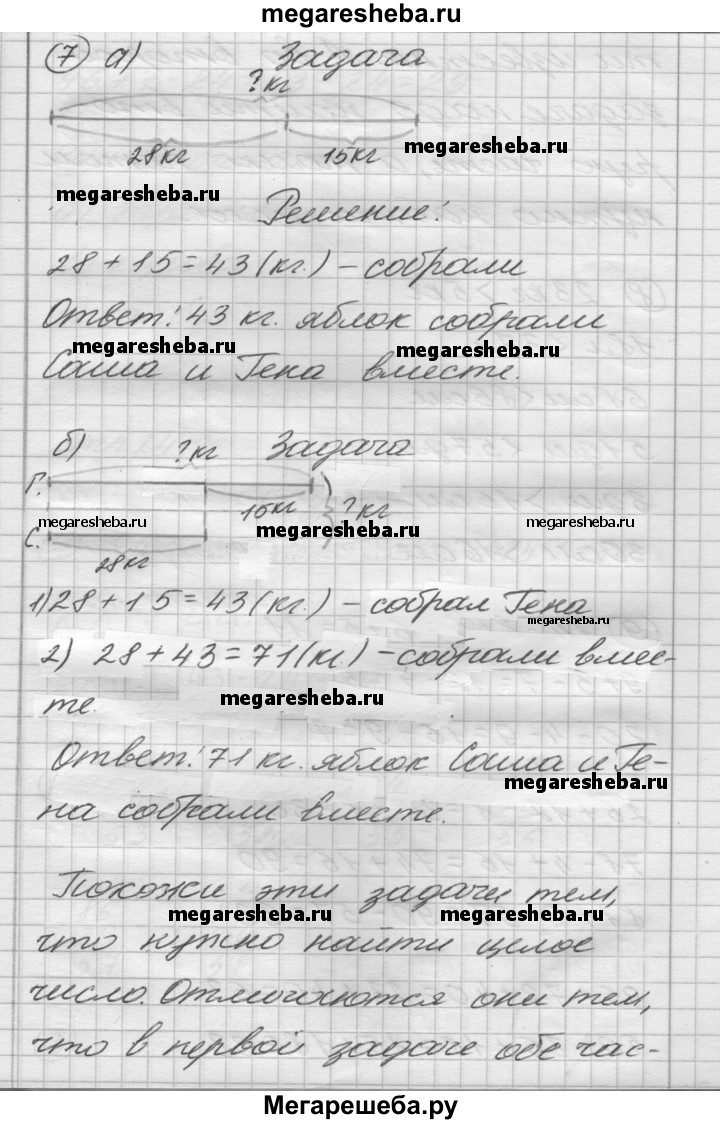 megaresheba.ru
7 а) Задача
? кг
28 кг 15 кг megaresheba.ru
megaresheba.ru
Решение:
28 + 15 = 43 (кг.) – собрали
Ответ: 43 кг. яблок собрали
megaresheba.ru megaresheba.ru
Саша и Гена вместе.
б) ? кг Задача
Г.
15 кг ? кг
megaresheba.ru megaresheba.ru megaresheba.ru
С.
28 кг
1) 28 + 15 = 43 (кг.) – собрал Гена
megaresheba.ru
2) 28 + 43 = 71 (кг.) – собрали вмес-
megaresheba.ru
те.
Ответ: 71 кг. яблок Саша и Ге-
megaresheba.ru
на собрали вместе.
Похожи эти задачи тем,
megaresheba.ru megaresheba.ru
что нужно найти целое
число. Отличаются они тем,
что в первой задаче обе час-
Мегарешеба.ру